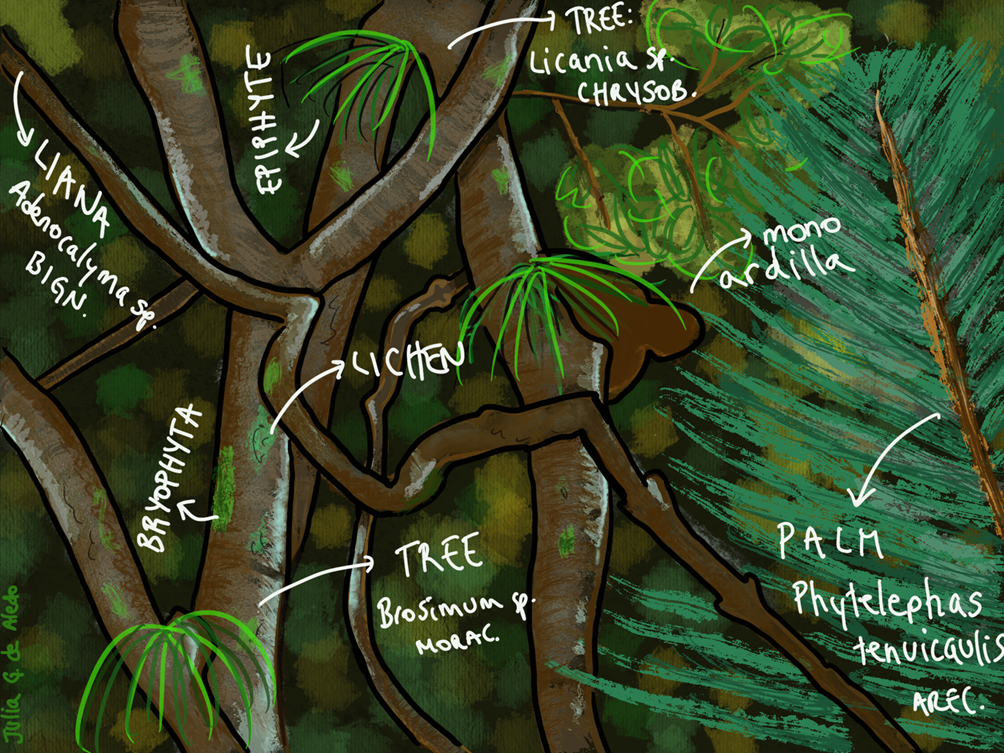 TREE:
Licania sp.
CHRYSOB.
EPIPHYTE
LIANA
Adenocalyma sp.
BIGN.
mono
ardilla
LICHEN
BRYOPHYTA
TREE
Brosimum sp.
MORAC.
PALM
Phytelephas
tenuicaulis
AREC.
Julia G. de Aledo